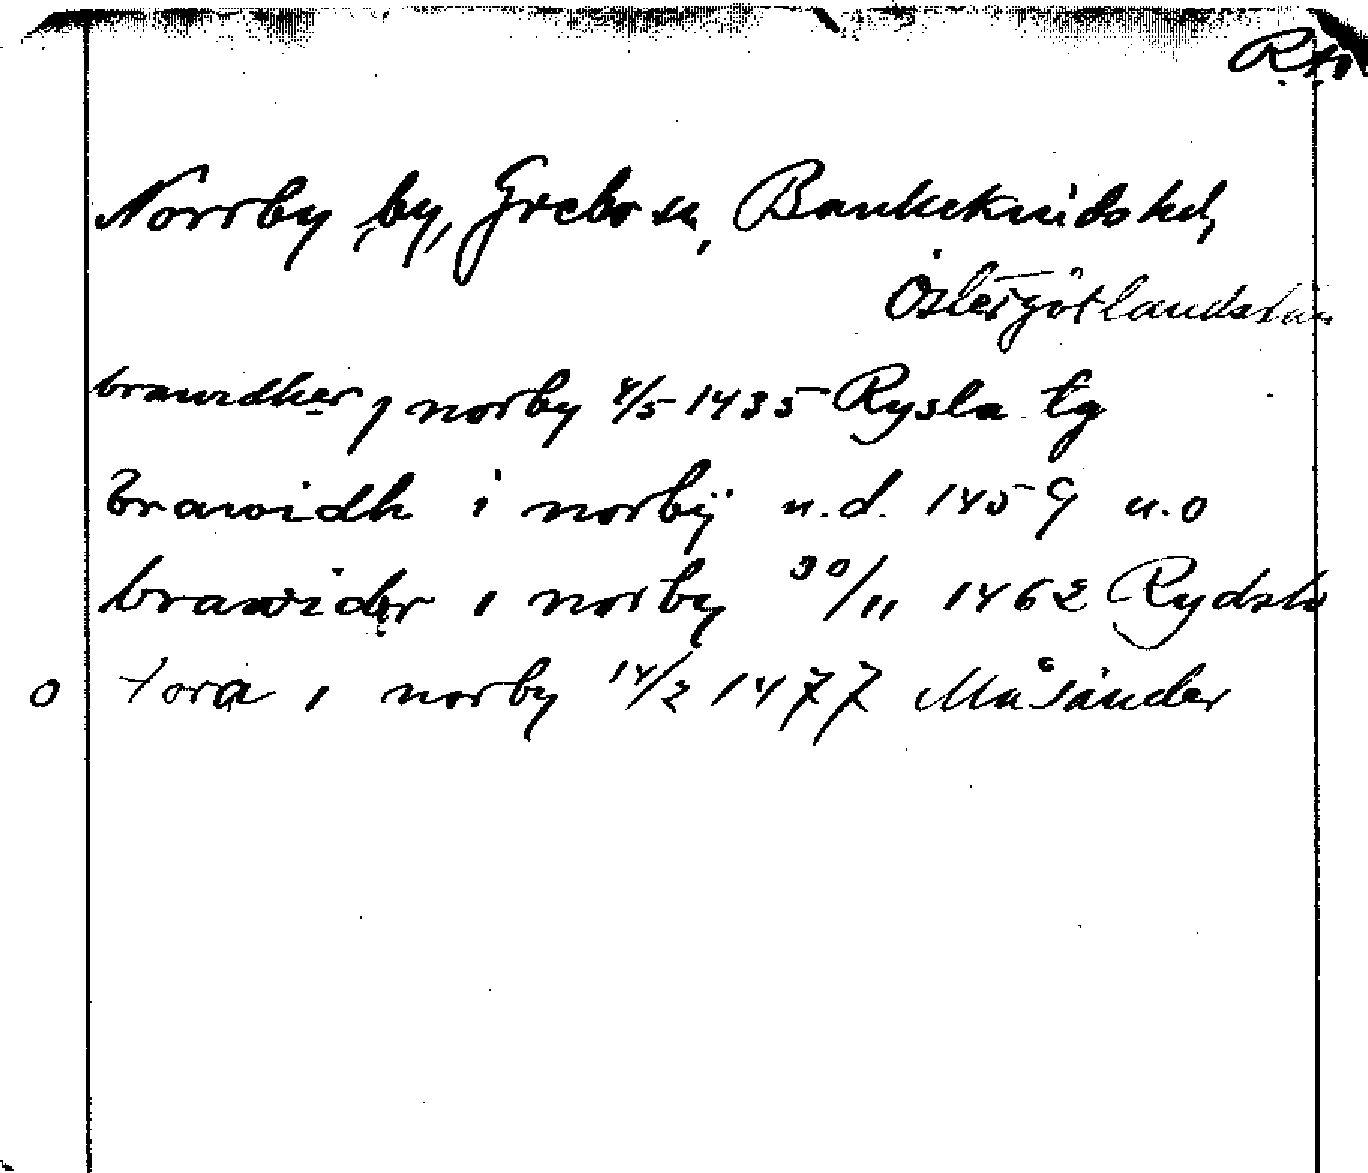 Norrby by, Grebo sn, Bankekinds hd,
Östergötlands län
brawidher j norby 4/5 1435 Rysla tg
brawidh i norbÿ u.d. 1459 u.o
brawider i norby 30/11 1462 Rydsla
o tora i norby 14/2 1477